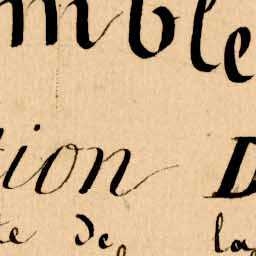 mble
tion D
te de la